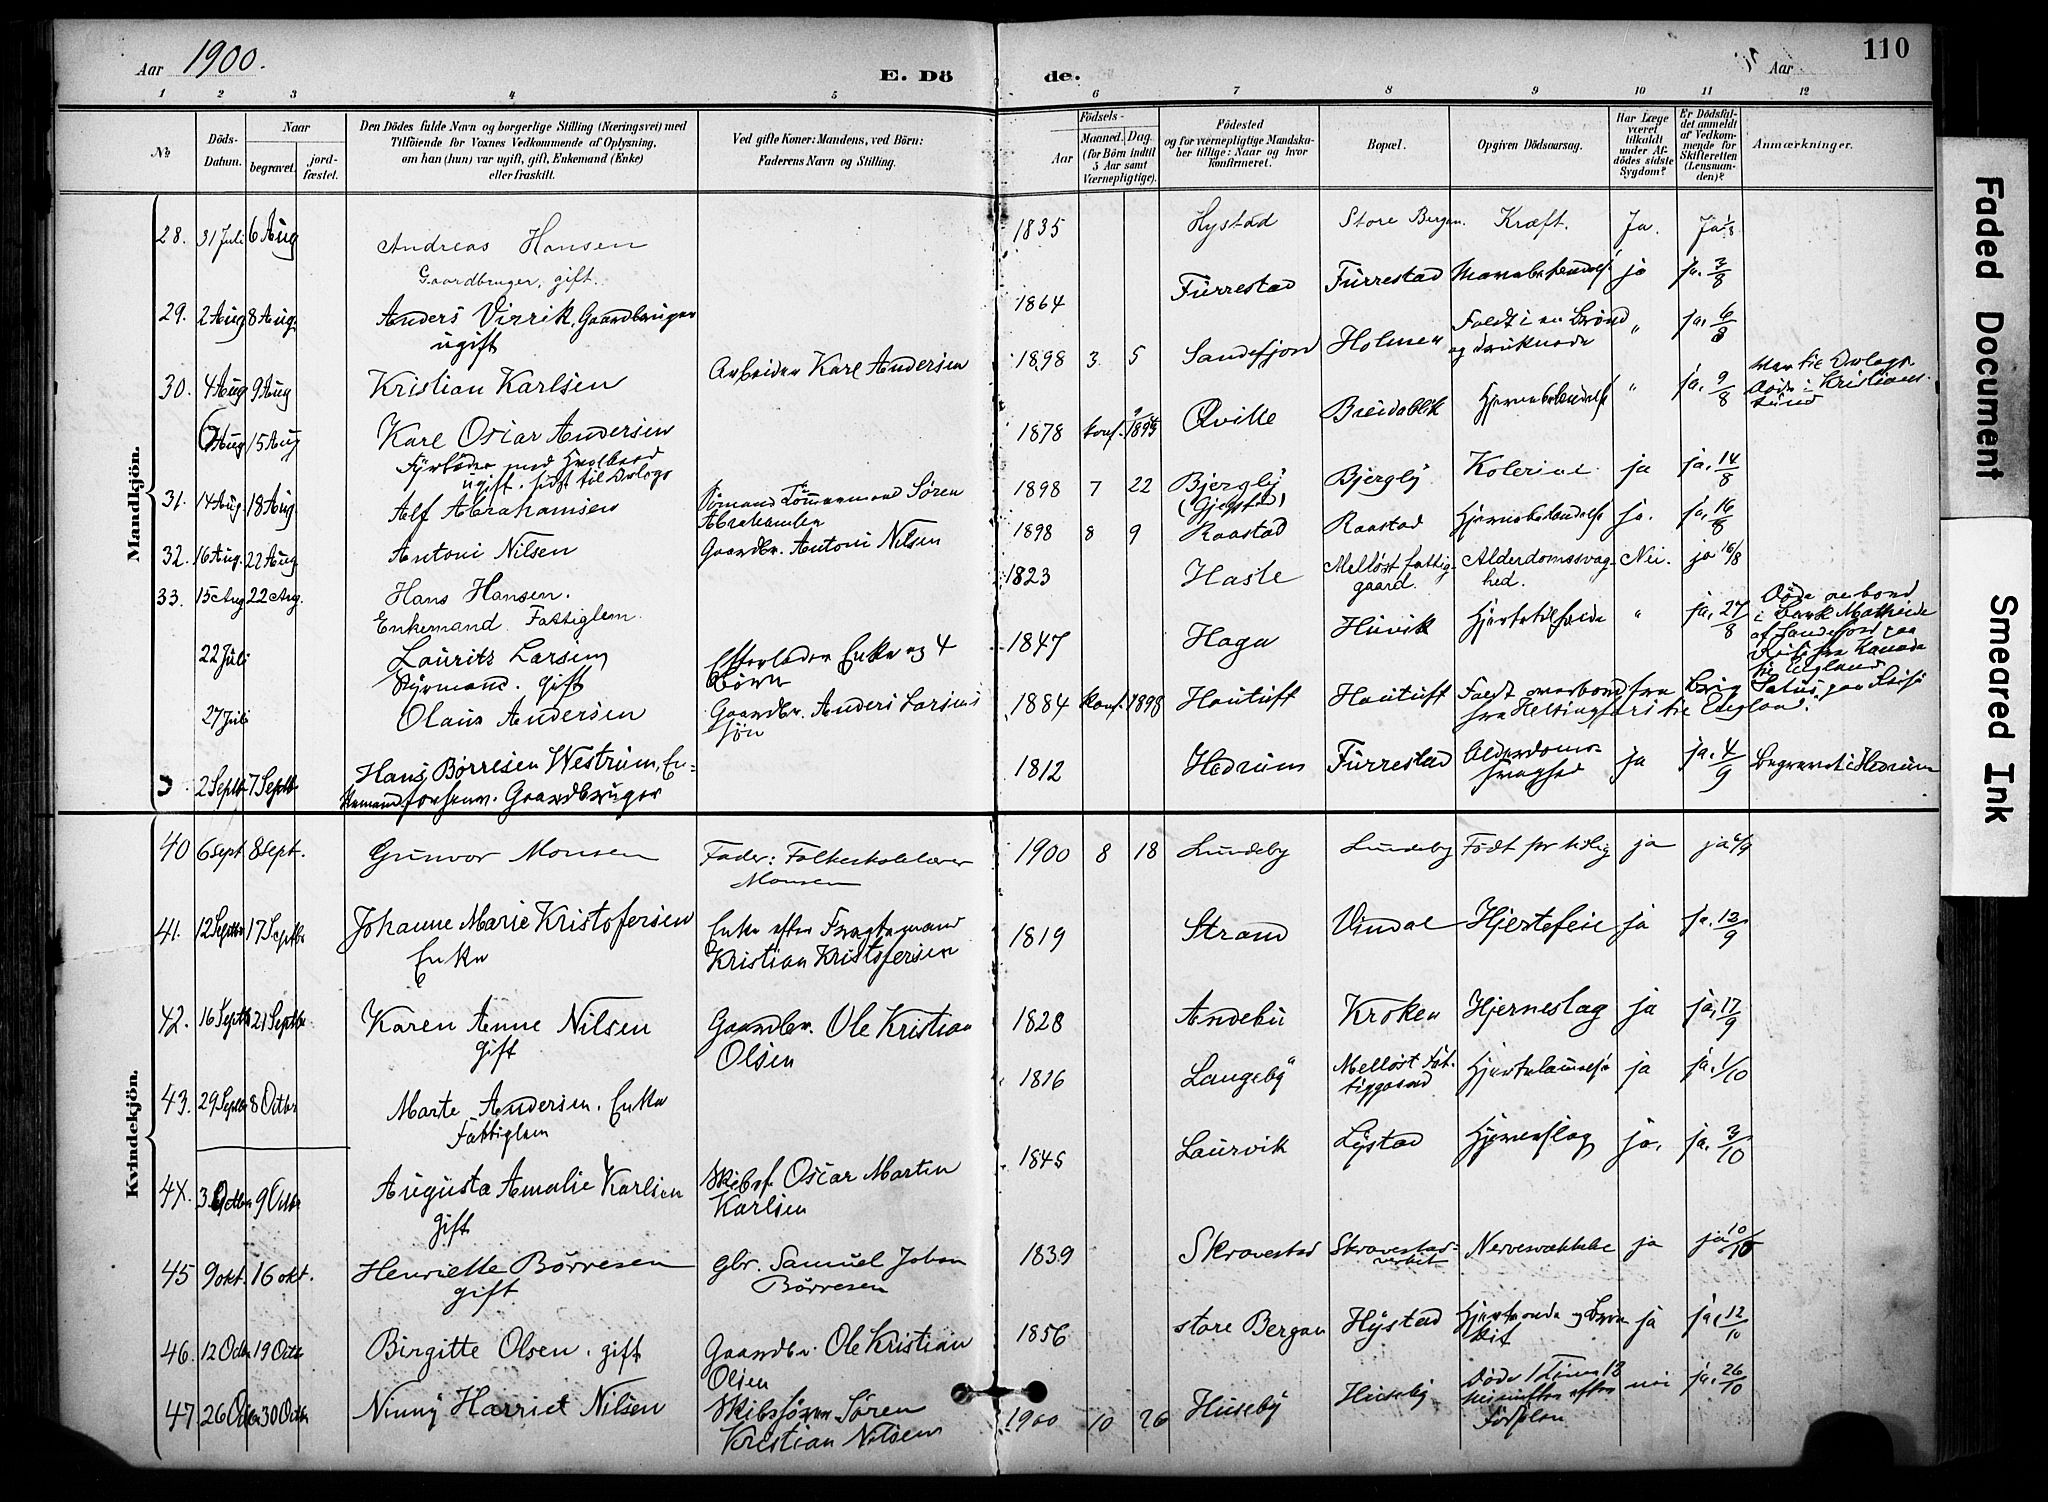 Aar 1900.
E. Döde.
Aar
110
1 2 3 4 5 6 7 8 9 10 11 12
№
Döds-Datum.
Naar
begravet.
jordfæstet.
Den Dödes fulde Navn og borgerlige Stilling (Næringsvei) med
Tilföiende for Voxnes Vedkommende af Oplysning,
om han (hun) var ugift, gift, Enkemand (Enke)
eller fraskilt.
Ved gifte Koner: Mandens, ved Börn:
Faderens Navn og Stilling.
Födsels-
Aar
Maaned. Dag.
(for Börn indtil 5 Aar samt Værnepligtige).
Födested
og for værnepligtige Mandskaber tillige: Naar og hvor konfirmeret.
Bopæl.
Opgiven Dödsaarsag.
Har Læge været tilkaldt under Afdödes sidste Sygdom?
Er Dödsfaldet anmeldt af Vedkommende for Skifteretten (Lensmanden)?
Anmærkninger.
Mandkjön.
28. 31 Juli 6 Aug Andreas Hansen 1835 Hystad Store Bergan. Kræft. Ja. Ja 1/8
Gaardbruger, gift.
29. 2 Aug 8 Aug. Anders Virrik, Gaardbruger 1864 Furrestad Furrestad ja ja. 3/8
ugift
30. 4 Aug 9 Aug Kristian Karlsen Arbeider Karl Andersen 1898 3 5 Sandefjord Holmen Faldt i en Brønd " ja, 6/8
og druknede
6 Aug 15 Aug Karl Oscar Andersen 1878 konf. Breidablik Hjernebetændelse " ja. 9/8
Fyrbøder med Hvalbaad
ugift.
Døde i Kristianssund
31. 14 Aug 18 Aug Alf Abrahamsen Tømmermand Søren 1898 7 22 Bjergby Bjergby Kolerine ja ja. 14/8
Abrahamsen
32. 16 Aug. 22 Aug Antoni Nilsen Gaardbr. Antoni Nilsen 1898 8 9 Raastad Raastad Hjernebetændelse ja. ja, 16/8
33. 15 Aug 22 Aug. Hans Hansen. 1823 Hasle Melløst Fattiggaard. Alderdomssvaghed. Nei. ja 16/8
Enkemand. Fattiglem.
22 Juli Laurits Larsen Efterlader Enke og 4 1847 Haga Huvik " ja, 27/8
Styrmand. gift Børn
Døde ombord
i Bark Mathilde
af Sandefjord paa
Reise fra Kanada
til England
27 Juli Olaus Andersen Gaardbr. Anders Larsens 1884 konf. 1898 Hautuft Hautuft Faldt overbord fra Brig Salus, paa Reise
søn fra Helsingfors til England.
2 Septb. 7 Septb. Hans Børresen Westrum, En- 1812 Hedrum Furrestad Alderdoms- ja ja. 4/9 Begravet i Hedrum
kemand forhenv. Gaardbruger svaghed
Kvindekjön.
40 6 sept 8 sept. Gunvor Monsen Fader: Folkeskolelærer 1900 8 18 Lundeby Lundeby Født for tidlig ja ja 6/9
Monsen
41. 12 Septbr 17 Septbr Johanne Marie Kristofersen Enke efter Fragtemand 1819 Strand Vindal Hjertefeil ja ja. 12/9
Enke Kristian Kristofersen
42. 16 Septb 21 Septbr Karen Anne Nilsen Gaardbr. Ole Kristian 1828 Andebu Kroken Hjerneslag ja ja, 17/9
gift Olsen
43. 29 Septbr 8 Octbr Marte Andersen, Enke 1816 Langeby Melløst Fattiggaard Hjertelammelse ja ja. 1/10
Fattiglem
44. 3 Octbr 9 Octbr Augusta Amalie Karlsen Skibsf. Oscar Martin 1845 Laurvik Lystad Hjerneslag ja. ja. 3/10
gift Karlsen
45 9 okt. 16 okt. Henriette Børresen gbr. Samuel Johan 1839 Skravestad Skravestad- Nervesvækkelse ja ja 10/10
gift Børresen
46. 12 Octbr 19 Octb Birgitte Olsen. gift Gaardbr. Ole Kristian 1856 store Bergan Hystad ja ja, 12/10
Olsen
47 26 Octbr 30 Octbr Ninny Harriet Nilsen Skibsfører Søren 1900 10 26 Huseby Huseby Døde 1 Time 12 nei ja. 26/10
Kristian Nilsen Minutter efter
Fødselen
Faded Document
Smeared Ink